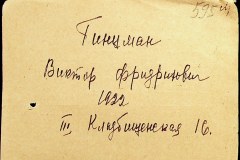 Гинцман
Виктор Фридрихович
1922
III Кладбищенская 16.